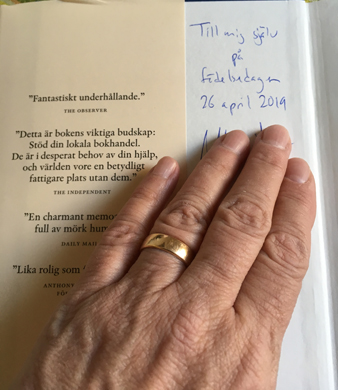 "Fantastiskt underhållande."
THE OBSERVER
"Detta är bokens viktiga budskap:
Stöd din lokala bokhandel.
De är i desperat behov av din hjälp,
och världen vore en betydligt
fattigare plats utan dem."
THE INDEPENDENT
"En charmant
full av mörk
DAILY MAIL
"Lika rolig som
ANTHONY
Till mig själv
på
födelsedagen
26 april 2019